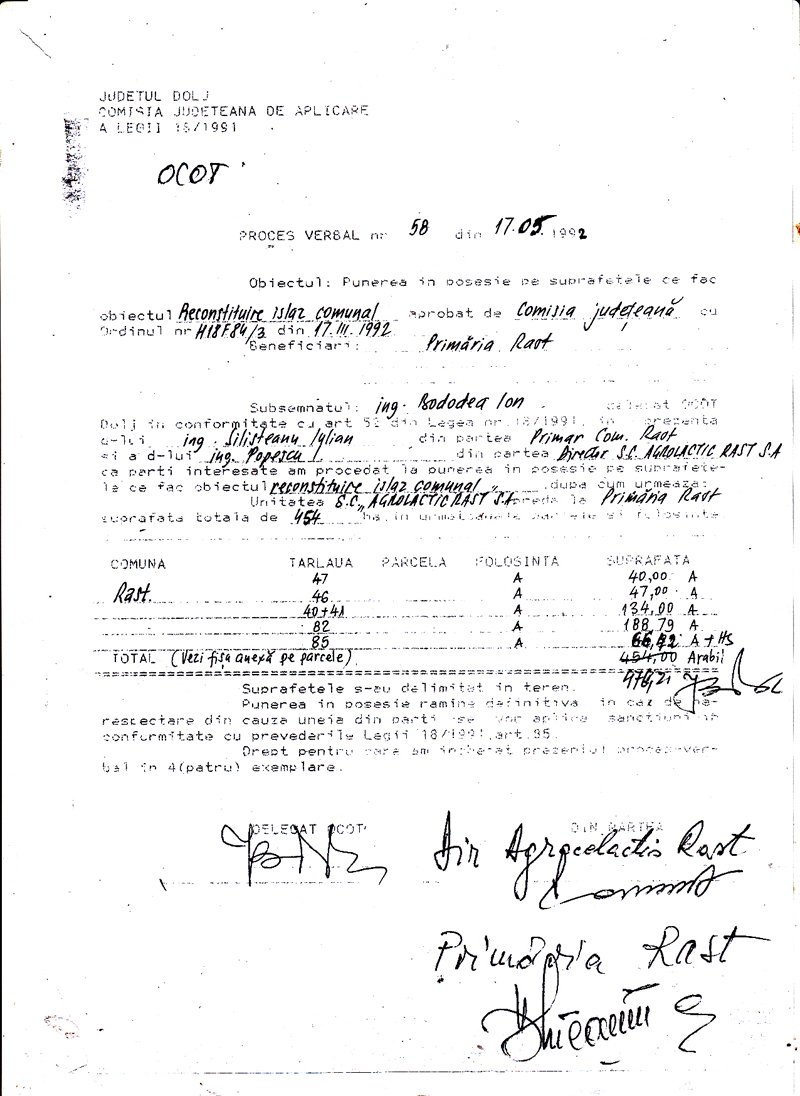 JUDETUL DOLJ
COMISIA JUDETEANA DE APLICARE
A LEGII 18/1991
OCOT
PROCES VERBAL nr 58 din 17.05.1992
Obiectul: Punerea in posesie pe suprafetele ce fac
obiectul Reconstituire islaz comunal aprobat de Comisia județeană cu
Ordinul nr din 17.III.1992
Beneficiari: Primăria Rast
Subsemnatul: ing. Bododea Ion delegat OCOT
Dolj in conformitate cu art 51 din Legea nr.18/1991, in prezenta
d-lui ing. Silisteanu Iulian din partea Primar Com. Rast
si a d-lui ing. Popescu I din partea Director S.C. AGROLACTIC RAST SA
ca parti interesate am procedat la punerea in posesie pe suprafete-
le ce fac obiectul reconstituire islaz comunal dupa cum urmeaza:
Unitatea S.C. „AGROLACTIC RAST SA preda la Primăria Rast
suprafata totala de 454 ha in urmatoarele parcele si folosinte
COMUNA TARLAUA PARCELA FOLOSINTA SUPRAFATA
47 A 40,00 A
Rast. 46 A 47,00 A
40+41 A 134,00 A
82 A 188,79 A
85 A 66,42 A + HS
TOTAL (Vezi fișa anexă pe parcele) 454,00 Arabil
476,21
Suprafetele s-au delimitat in teren.
Punerea in posesie ramine definitiva in caz de ne-
respectare din cauza uneia din parti se vor aplica sanctiuni in
conformitate cu prevederile Legii 18/1991,art.95.
Drept pentru care am incheiat prezentul proces-ver-
bal in 4(patru) exemplare.
DELEGAT OCOT DIN PARTEA
Dir Agrolactic Rast
Primăria Rast